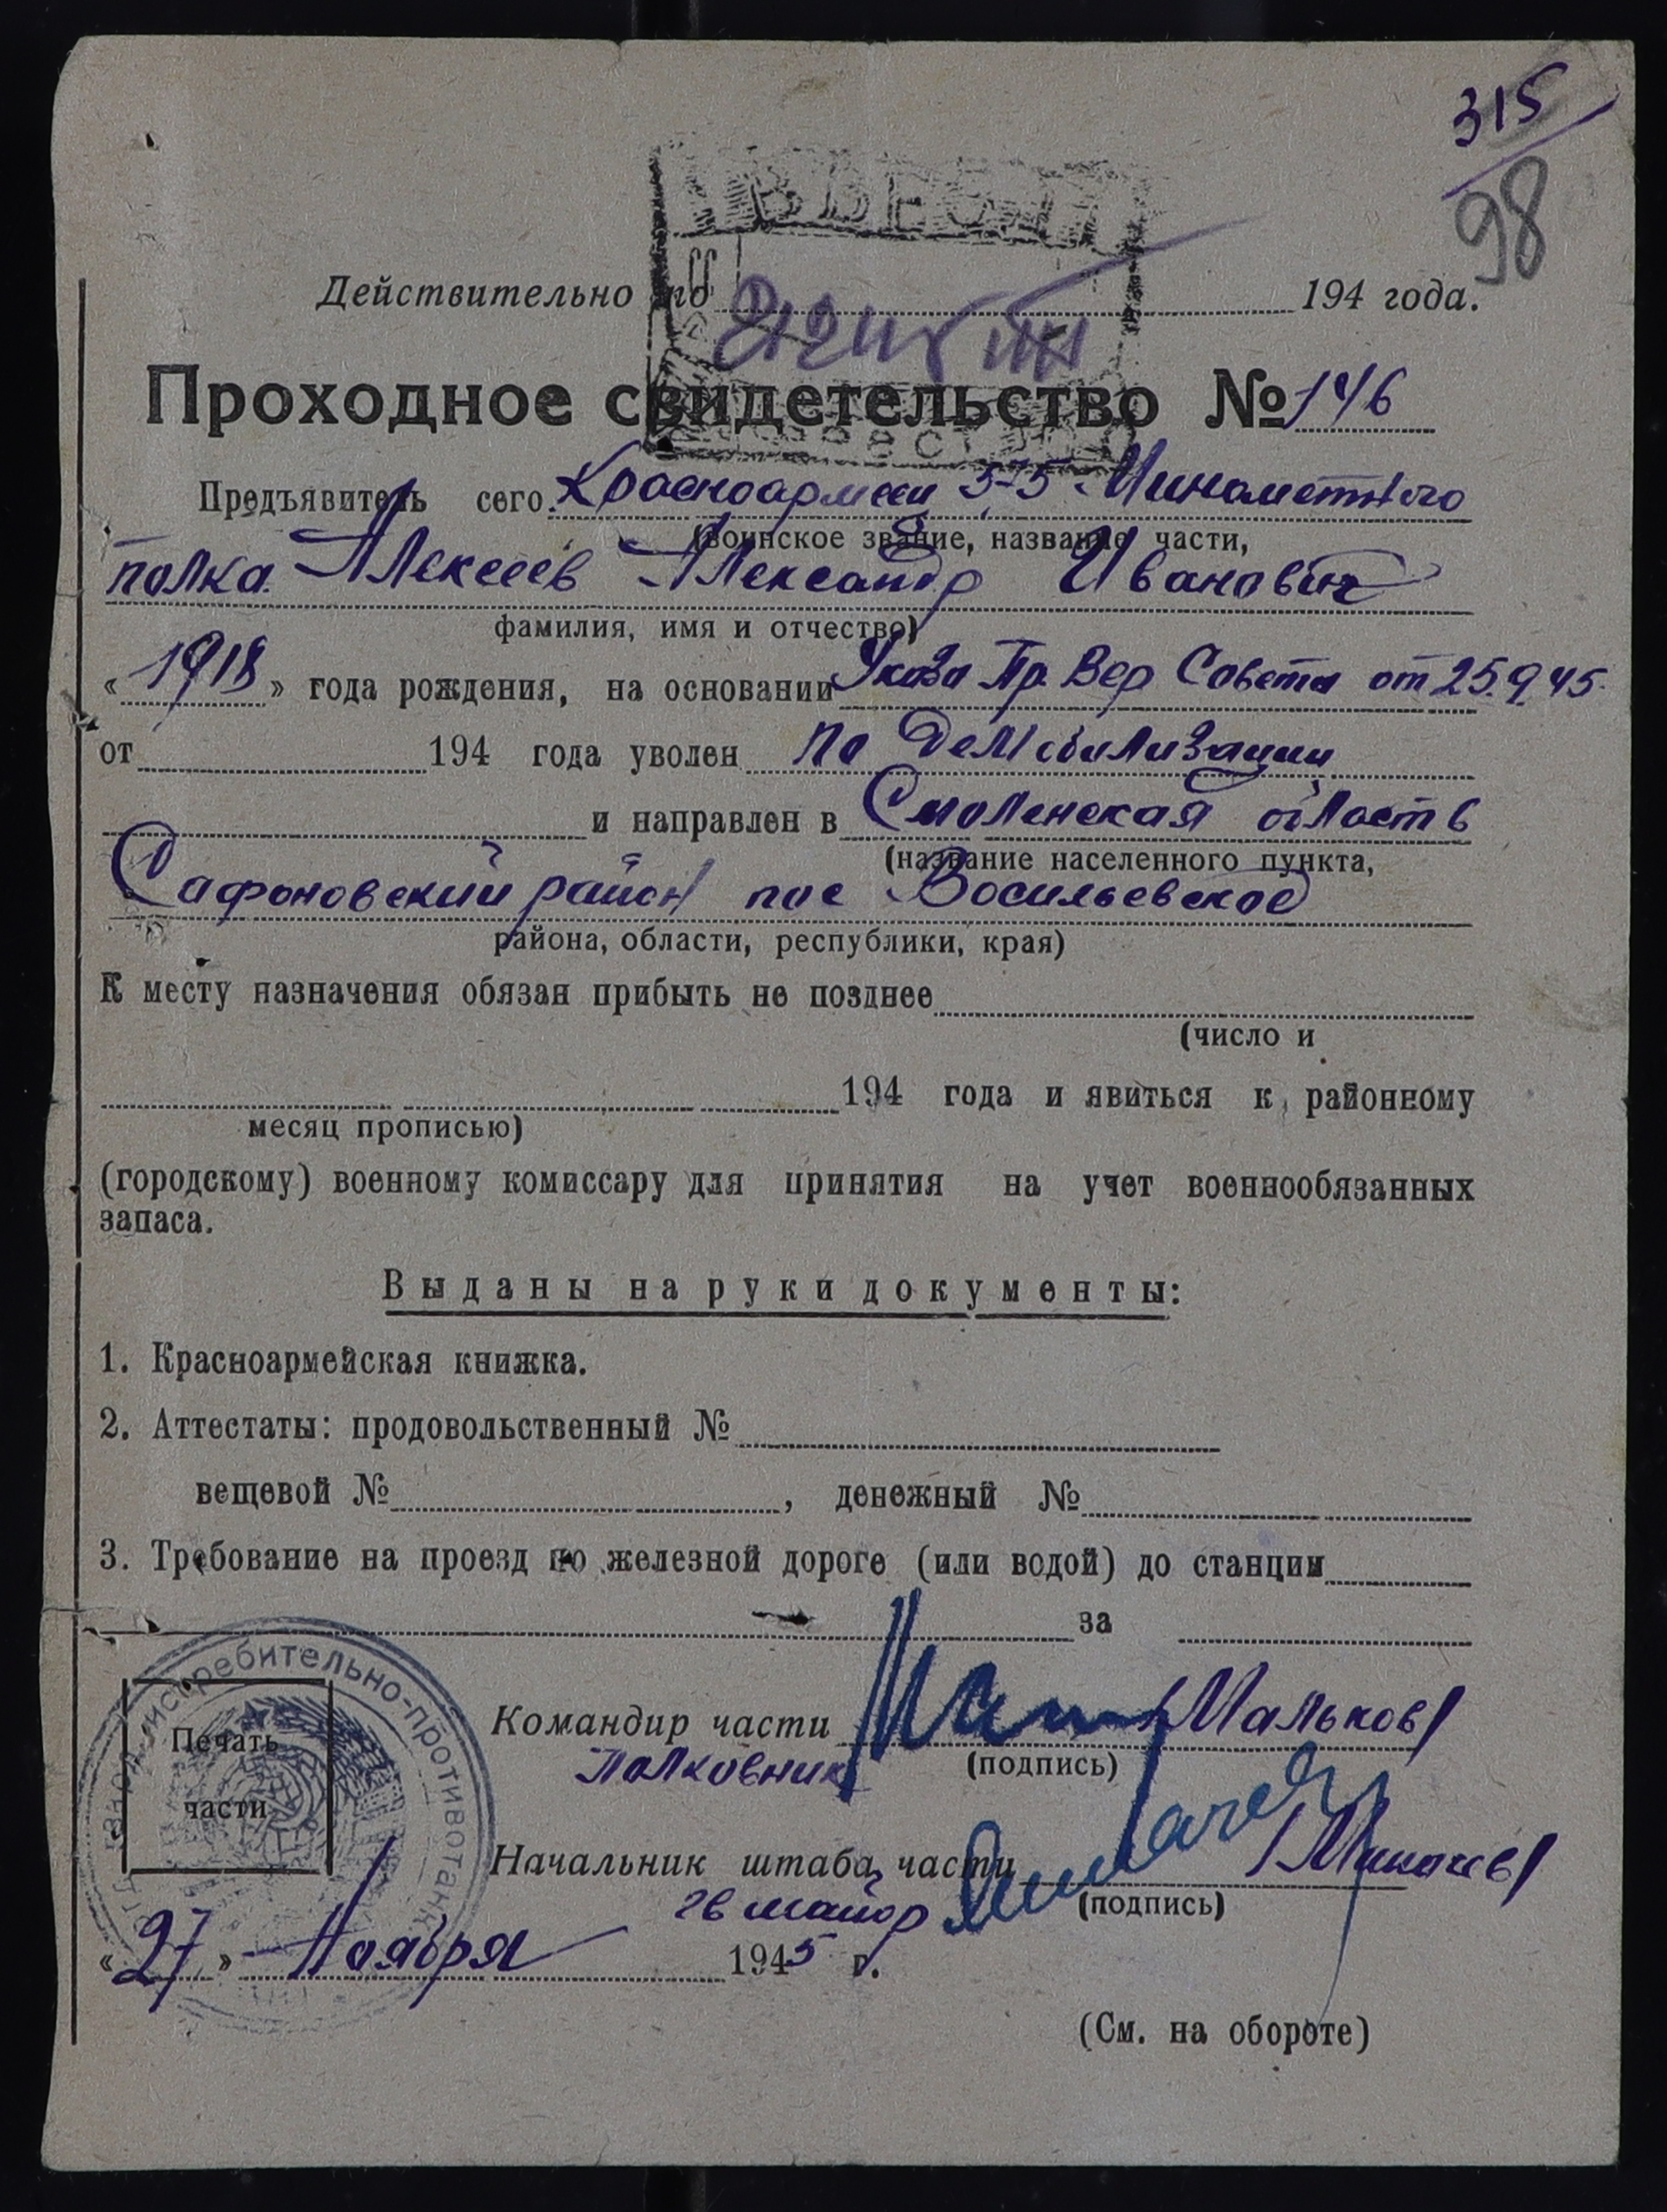 315
98
Действительно по 194 года.
Проходное свидетельство № 146
Предъявитель сего Красноармеец Минометного
(воинское звание, название части,
полка Алексеев Александр Иванович
фамилия, имя и отчество)
« 1918 » года рождения, на основании Указа Пр. Вер Совета от 25.9.45.
от 194 года уволен по демобилизации
и направлен в Смоленская область
(название населенного пункта,
Сафоновский район пос Васильевское
района, области, республики, края)
К месту назначения обязан прибыть не позднее
(число и
194 года и явиться к районному
месяц прописью)
(городскому) военному комиссару для принятия на учет военнообязанных
запаса.
Выданы на руки документы:
1. Красноармейская книжка.
2. Аттестаты: продовольственный №
вещевой № , денежный №
3. Требование на проезд по железной дороге (или водой) до станции
за
истребительно-противотанк
Печать
части
Командир части /Мальков/
Полковник (подпись)
Начальник штаба части
гв майор (подпись)
« 27 » Ноября 1945 г.
(См. на обороте)